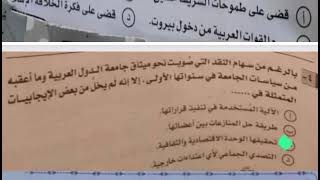 قضى على طموحات الشريف
قضى على فكرة الخلافة
القوات العربية من دخول بيروت.
٤- بالرغم من سهام النقد التي صُوبت نحو ميثاق جامعة الدول العربية وما أعقبه
من سياسات الجامعة في سنواتها الأولى، إلا إنه لم يخل من بعض الإيجابيات
المتمثلة في ......
أ الآلية المُستخدمة في تنفيذ قراراتها.
ب طريقة حل المنازعات بين أعضائها.
ج تحقيقها الوحدة الاقتصادية والثقافية.
د التصدي الجماعي لأي اعتداءات خارجية.